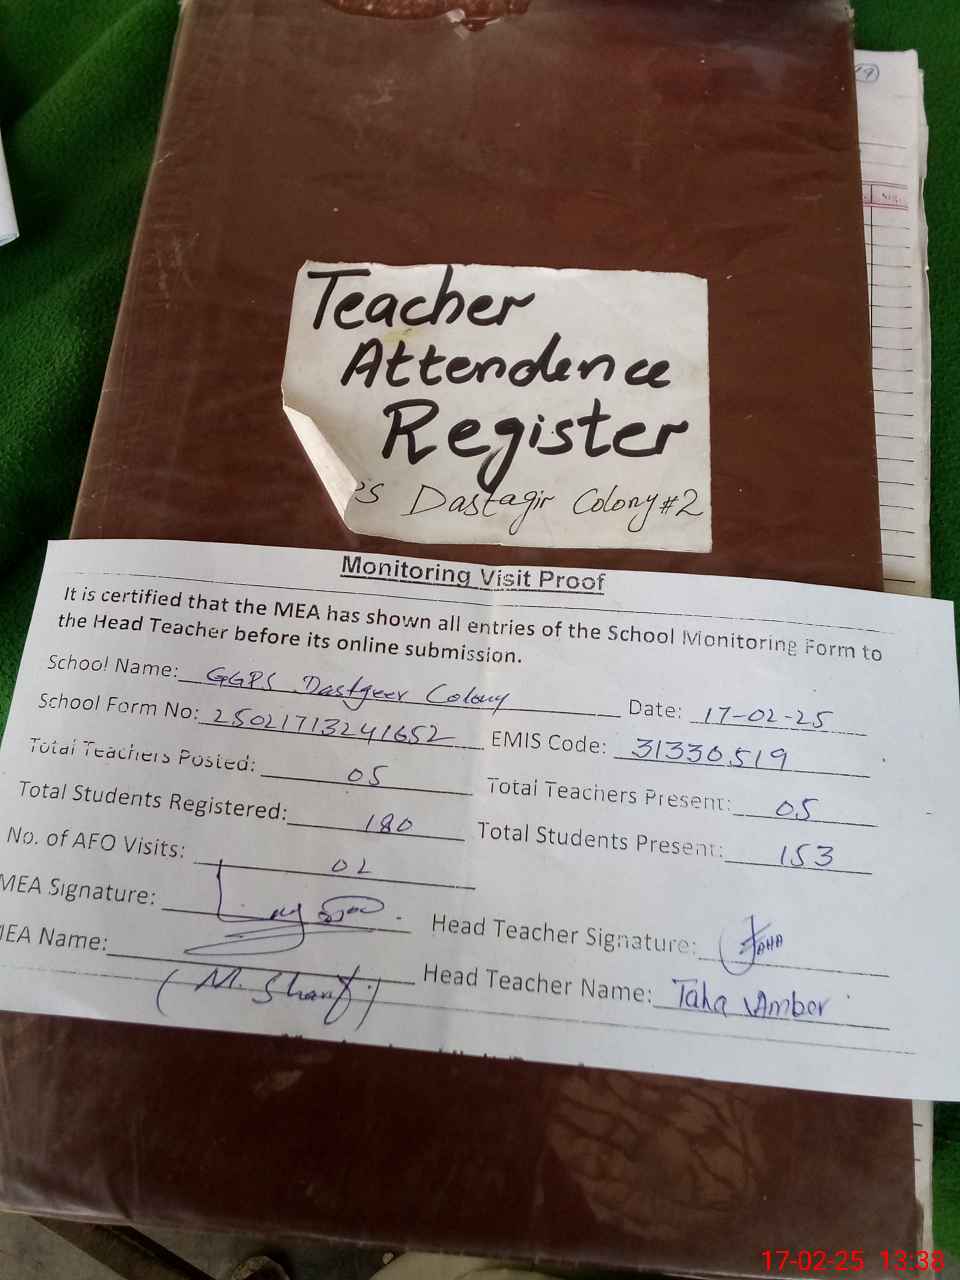 Teacher
Attendence
Register
Dastagir Colony #2
Monitoring Visit Proof
It is certified that the MEA has shown all entries of the School Monitoring Form to
the Head Teacher before its online submission.
School Name: GGPS Dastgeer Colony Date: 17-02-25
School Form No: 25021713241652 EMIS Code: 31330519
Total Teachers Posted: 05 Total Teachers Present: 05
Total Students Registered: 180 Total Students Present: 153
No. of AFO Visits: 02
MEA Signature: Head Teacher Signature: Taha
MEA Name: (M. Sharif) Head Teacher Name: Taha Amber
17-02-25 13:38